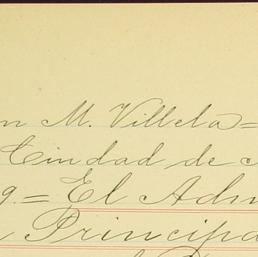 n M. Villela =
Ciudad de
9. = El Adm
Principa